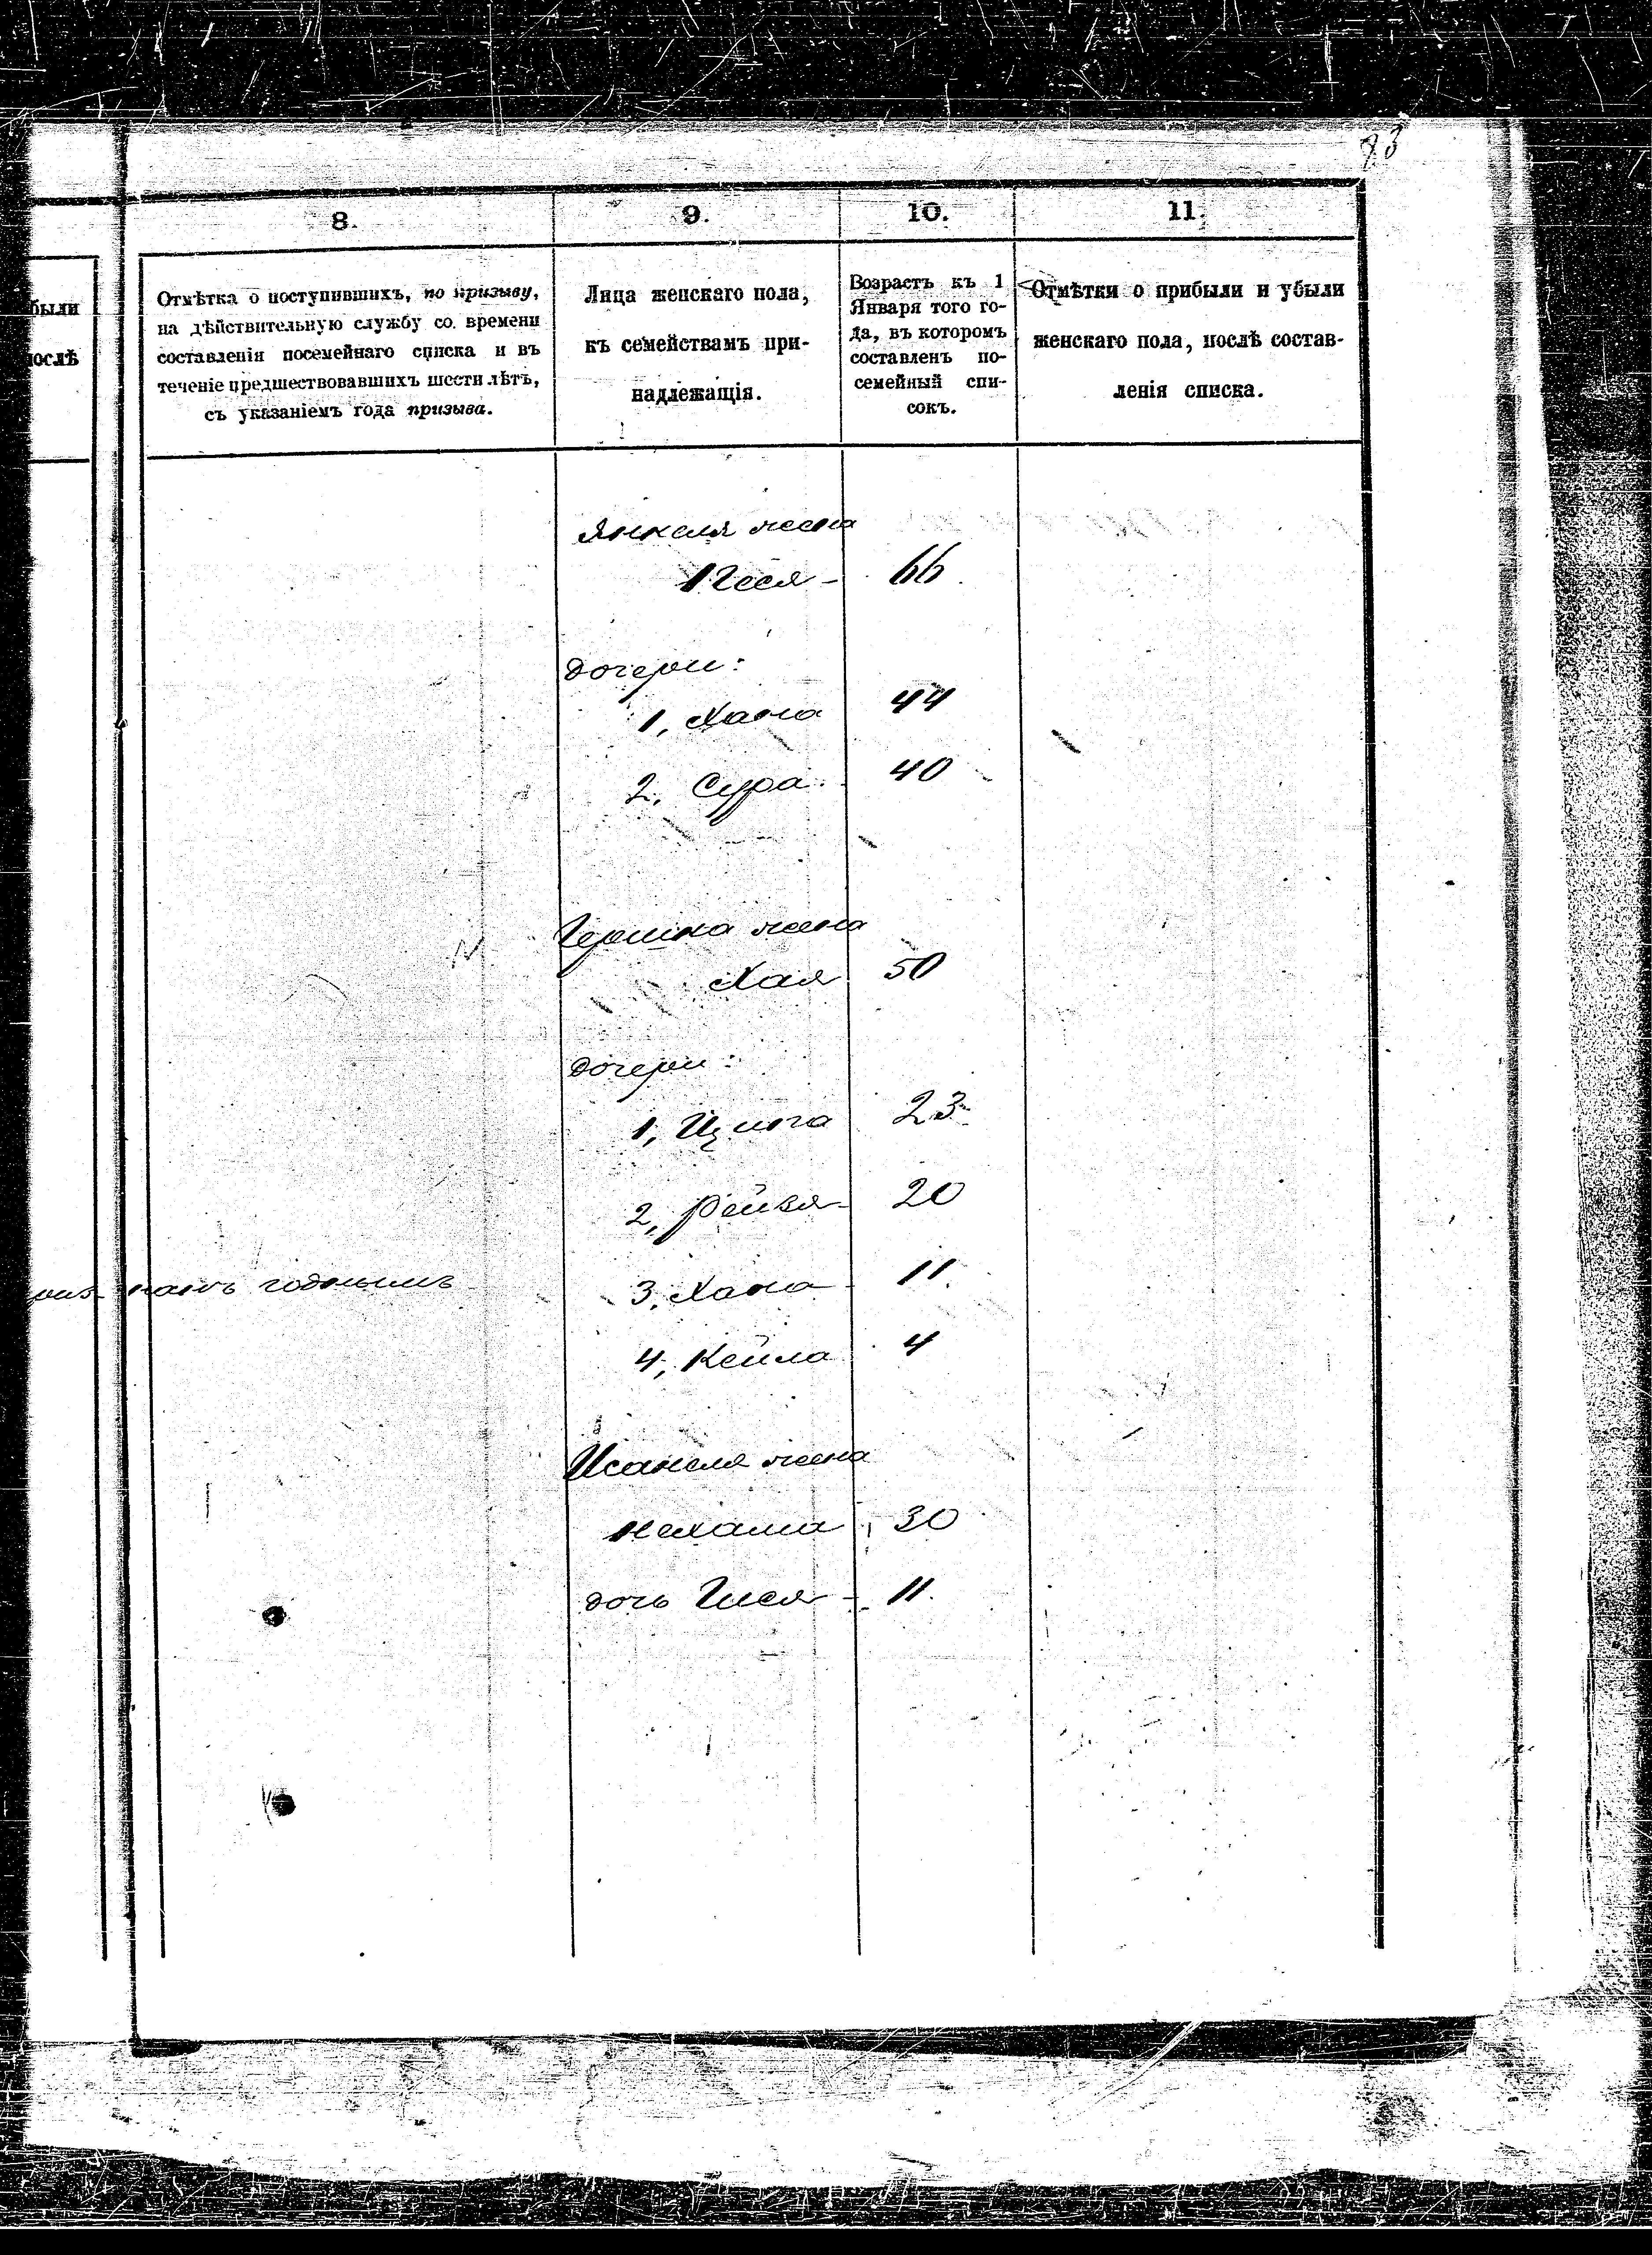 93
8.
9.
10.
11.
были
послѣ
Отмѣтка о поступившихъ, по призыву,
на дѣйствительную службу со. времени
составленія посемейнаго списка и въ
теченіе предшествовавшихъ шести лѣтъ,
съ указаніемъ года призыва.
Лица женскаго пола,
къ семействамъ при-
надлежащія.
Возрастъ къ 1
Января того го-
да, въ которомъ
составленъ по-
семейный спи-
сокъ.
Отмѣтки о прибыли и убыли
женскаго пола, послѣ состав-
ленія списка.
Янкеля жена
66
дочери:
1, Хана 44
2, Сура 40
Гершка жена
Хая 50
дочери:
1, 23
2, 20
годнымъ
3, Хана 11
4, Кейла 4
жена
Нехама 30
дочь Гися 11